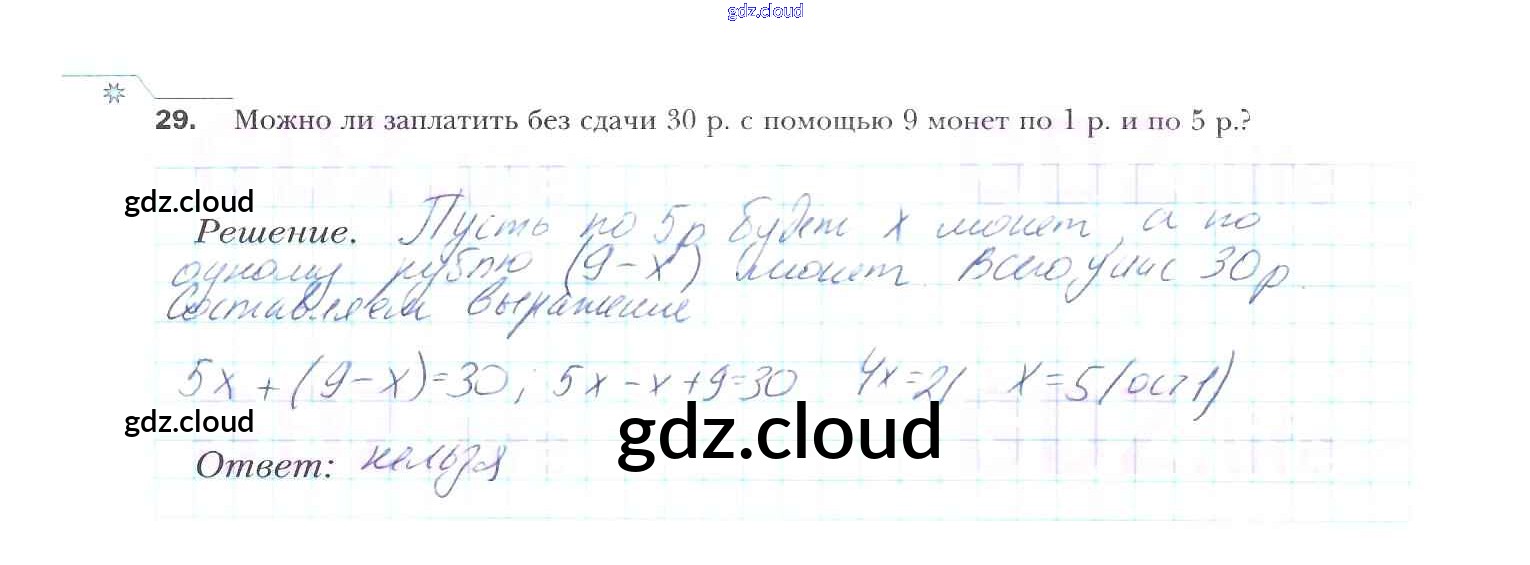 gdz.cloud
29. Можно ли заплатить без сдачи 30 р. с помощью 9 монет по 1 р. и по 5 р.?
gdz.cloud
Решение. Пусть по 5р будет x монет, а по
одному рублю (9-x) монет. Всего у нас 30р.
Составляем выражение
5x+(9-x)=30; 5x-x+9=30 4x=21 x=5(ост1)
gdz.cloud
gdz.cloud
Ответ: нельзя